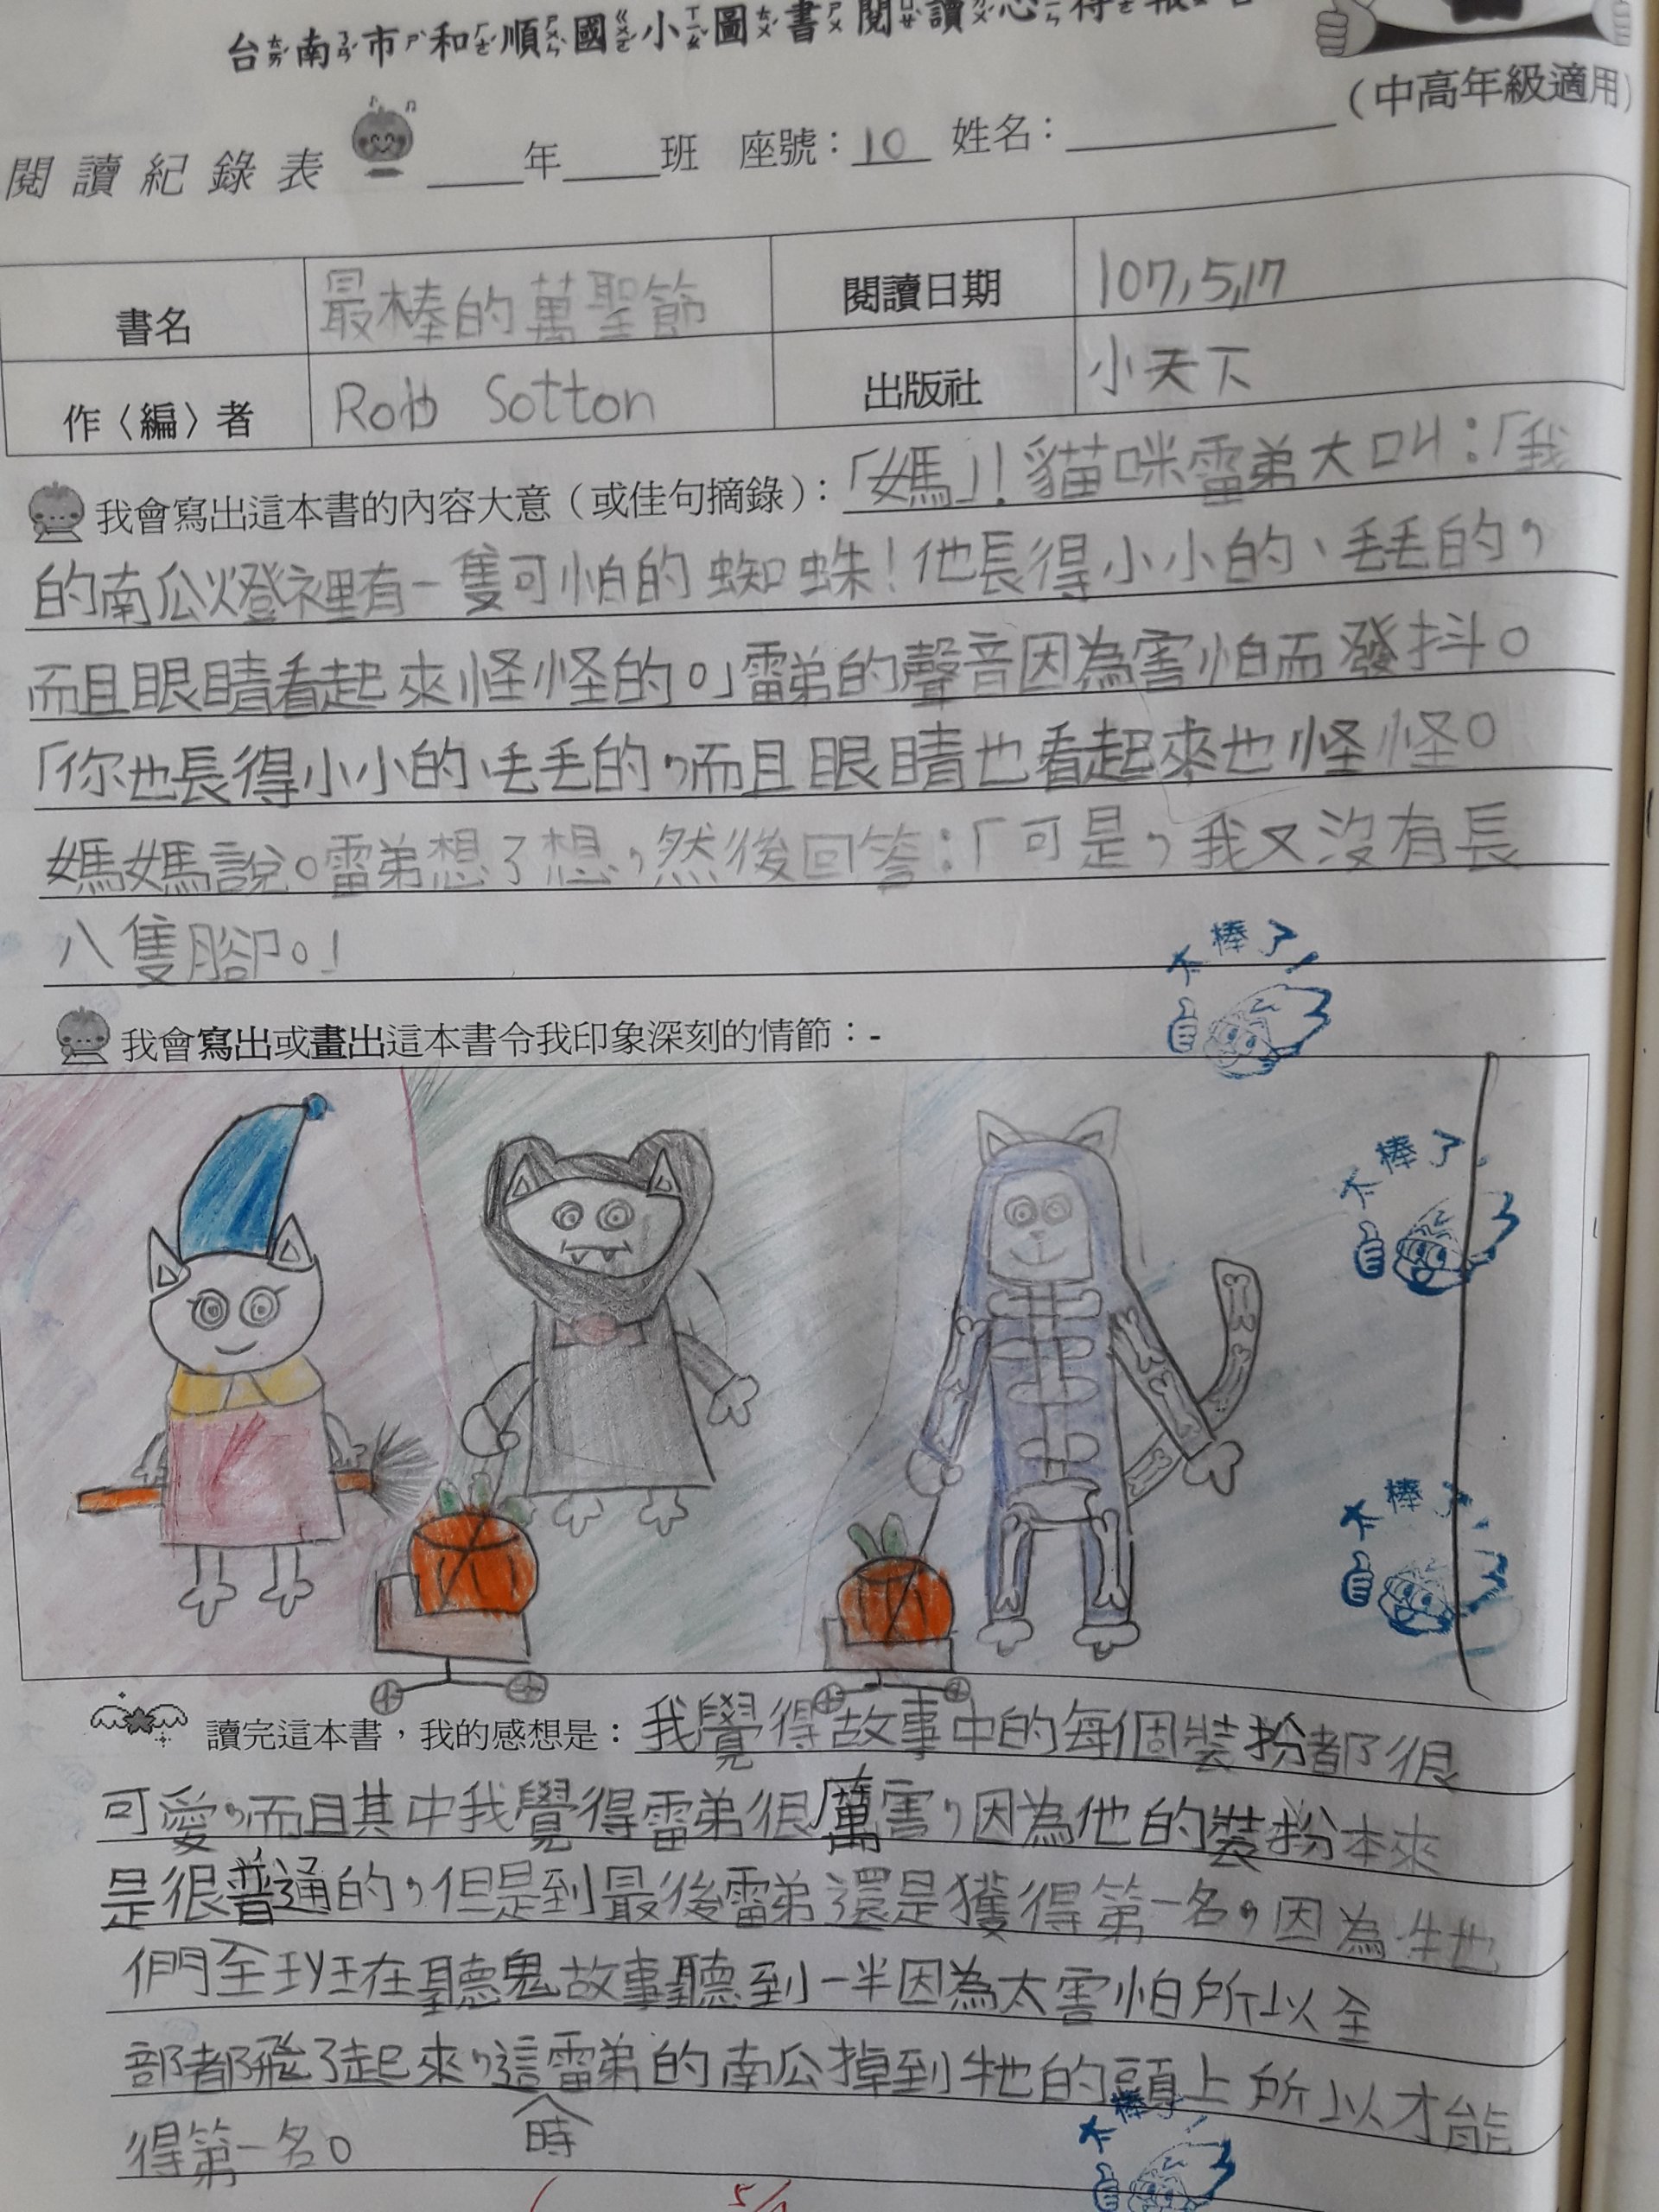 台南市和順國小圖書閱讀心得報告
（中高年級適用）
閱讀紀錄表 ____年____班 座號：10 姓名：
書名 最棒的萬聖節 閱讀日期 107,5,17
作〈編〉者 Rob Sotton 出版社 小天下
我會寫出這本書的內容大意（或佳句摘錄）：「媽」！貓咪雷弟大叫：「我
的南瓜燈裡有一隻可怕的蜘蛛！他長得小小的、毛毛的，
而且眼睛看起來怪怪的。」雷弟的聲音因為害怕而發抖。
「你也長得小小的、毛毛的，而且眼睛也看起來也怪怪。
媽媽說。雷弟想了想，然後回答：「可是，我又沒有長
八隻腳。」
太棒了！
我會寫出或畫出這本書令我印象深刻的情節：-
太棒了！
太棒了！
讀完這本書，我的感想是：我覺得故事中的每個裝扮都很
可愛，而且其中我覺得雷弟很厲害，因為他的裝扮本來
是很普通的，但是到最後雷弟還是獲得第一名，因為牠
們全班在聽鬼故事聽到一半因為太害怕所以全
部都飛了起來，這時雷弟的南瓜掉到牠的頭上所以才能
得第一名。
太棒了！